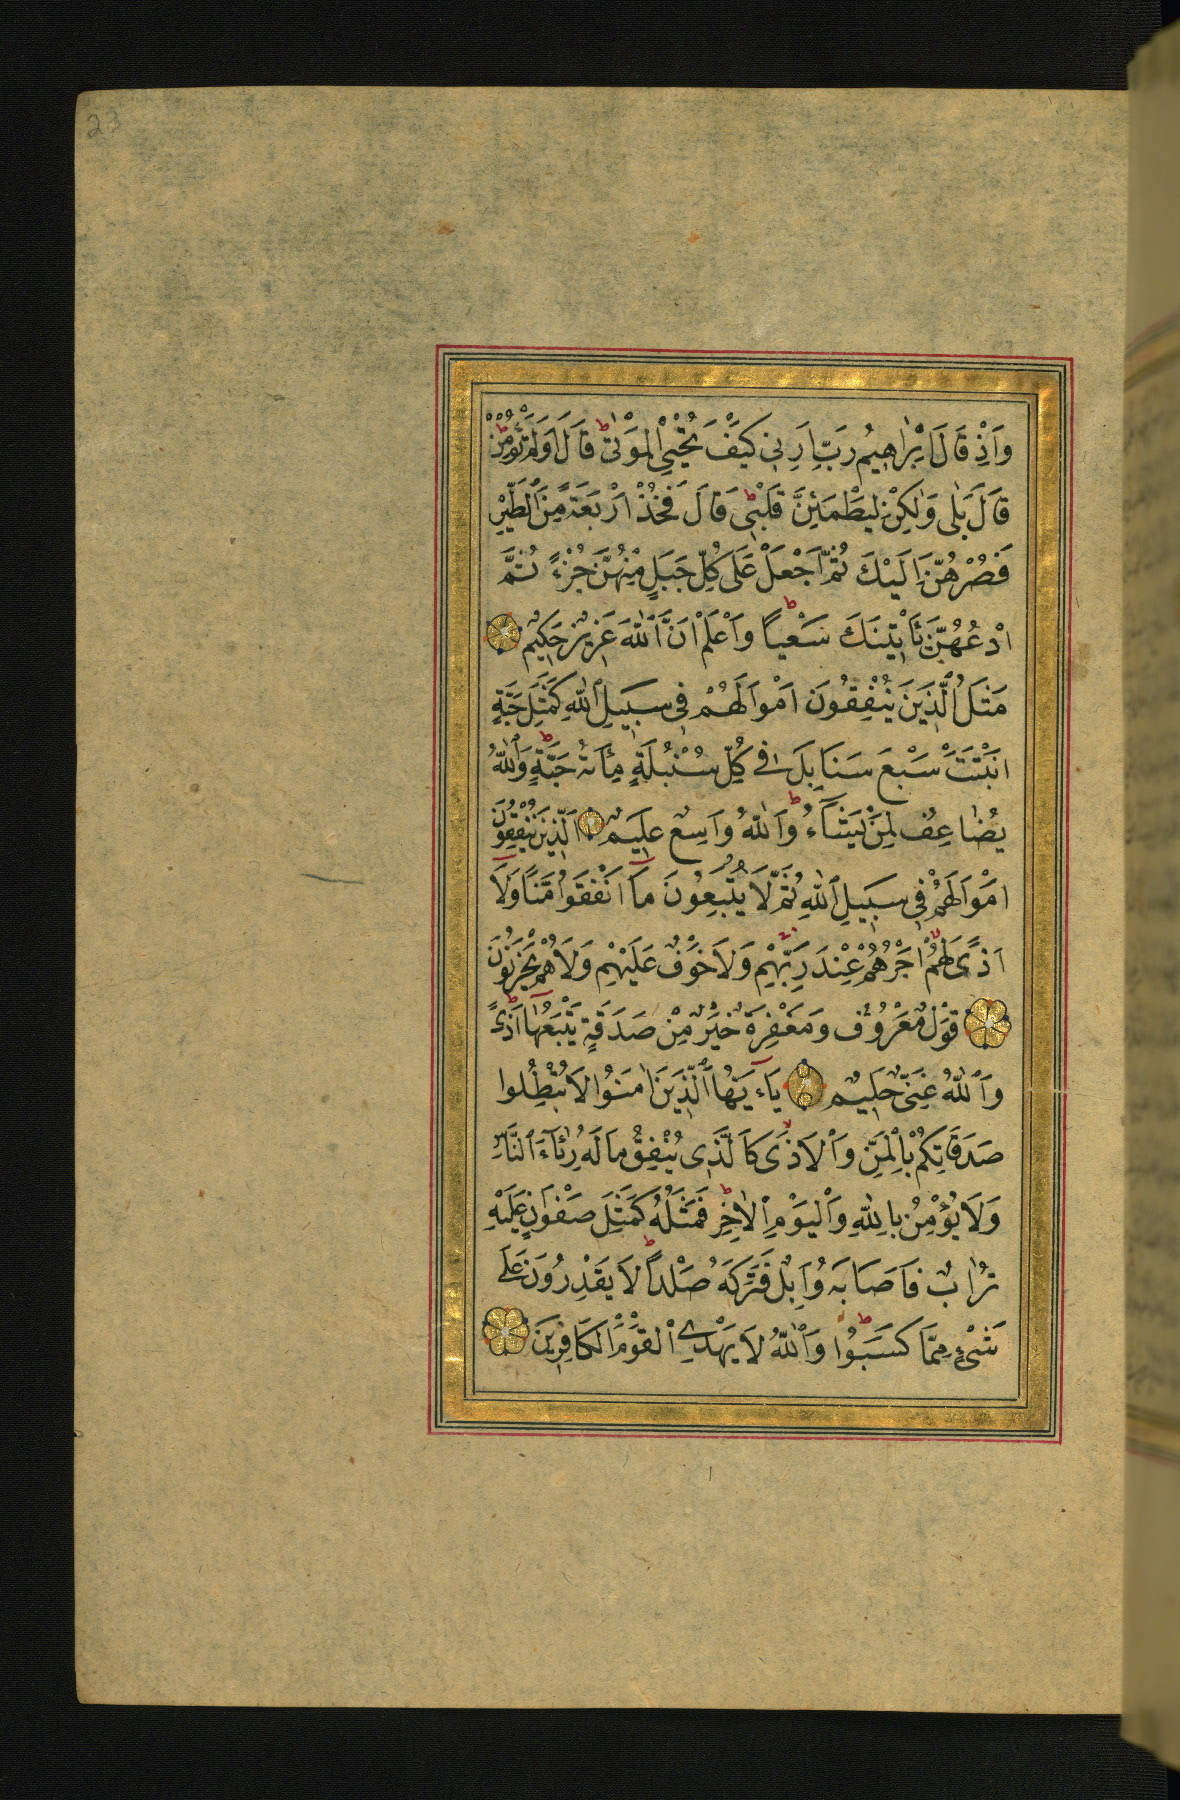 23
وَاِذْ قَالَ اِبْرٰاهِيمُ رَبِّ اَرِنِي كَيْفَ تُحْيِي الْمَوْتٰى ط قَالَ اَوَلَمْ تُؤْمِنْ ط
قَالَ بَلٰى وَلٰكِنْ لِيَطْمَئِنَّ قَلْبِي ط قَالَ فَخُذْ اَرْبَعَةً مِنَ الطَّيْرِ
فَصُرْهُنَّ اِلَيْكَ ثُمَّ اجْعَلْ عَلٰى كُلِّ جَبَلٍ مِنْهُنَّ جُزْءً ثُمَّ
ادْعُهُنَّ يَأْتِينَكَ سَعْياً ط وَاعْلَمْ اَنَّ اللهَ عَزِيزٌ حَكِيمٌ
مَثَلُ الَّذِينَ يُنْفِقُونَ اَمْوَالَهُمْ فِي سَبِيلِ اللهِ كَمَثَلِ حَبَّةٍ
اَنْبَتَتْ سَبْعَ سَنَابِلَ فِي كُلِّ سُنْبُلَةٍ مِأَةُ حَبَّةٍ ط وَاللهُ
يُضَاعِفُ لِمَنْ يَشَاءُ ط وَاللهُ وَاسِعٌ عَلِيمٌ اَلَّذِينَ يُنْفِقُونَ
اَمْوَالَهُمْ فِي سَبِيلِ اللهِ ثُمَّ لَا يُتْبِعُونَ مَا اَنْفَقُوا مَنًّا وَلَا
اَذًى لَهُمْ اَجْرُهُمْ عِنْدَ رَبِّهِمْ وَلَا خَوْفٌ عَلَيْهِمْ وَلَا هُمْ يَحْزَنُونَ
قَوْلٌ مَعْرُوفٌ وَمَغْفِرَةٌ خَيْرٌ مِنْ صَدَقَةٍ يَتْبَعُهَا اَذًى ط
وَاللهُ غَنِيٌّ حَلِيمٌ يَاءَيُّهَا الَّذِينَ اٰمَنُوا لَا تُبْطِلُوا
صَدَقَاتِكُمْ بِالْمَنِّ وَالْاَذٰى كَالَّذِي يُنْفِقُ مَالَهُ رِئَآءَ النَّاسِ
وَلَا يُؤْمِنُ بِاللهِ وَالْيَوْمِ الْاٰخِرِ ط فَمَثَلُهُ كَمَثَلِ صَفْوَانٍ عَلَيْهِ
تُرَابٌ فَاَصَابَهُ وَابِلٌ فَتَرَكَهُ صَلْداً ط لَا يَقْدِرُونَ عَلٰى
شَيْءٍ مِمَّا كَسَبُوا ط وَاللهُ لَا يَهْدِي الْقَوْمَ الْكَافِرِينَ